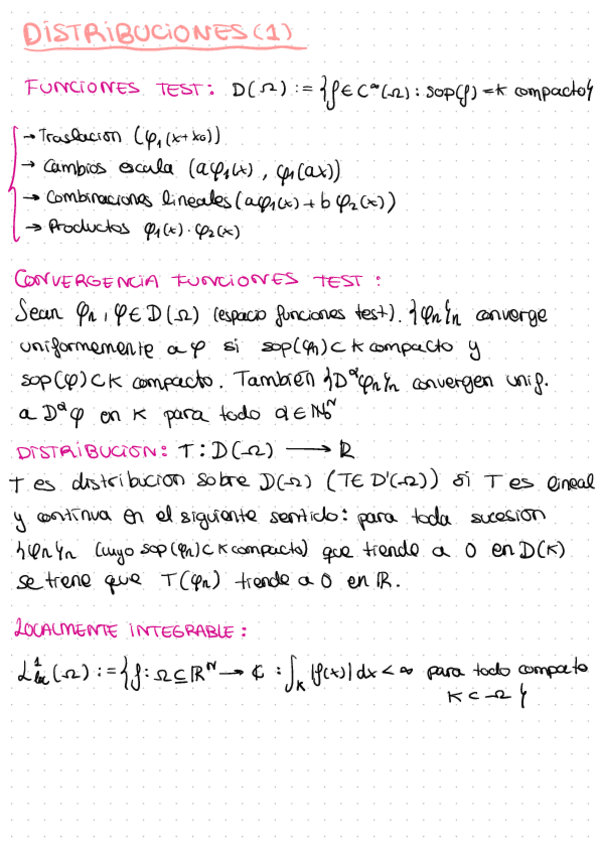 DISTRIBUCIONES (1)
FUNCIONES TEST: D(Ω) := {f ∈ C^∞(Ω) : sop(f) = K compacto}
→ Traslacion (φ₁(x+x₀))
→ Cambios escala (aφ₁(x), φ₁(ax))
→ Combinaciones lineales (aφ₁(x) + bφ₂(x))
→ Productos φ₁(x)·φ₂(x)
CONVERGENCIA FUNCIONES TEST:
Sean φₙ, φ ∈ D(Ω) (espacio funciones test). {φₙ}ₙ converge
uniformemente a φ si sop(φₙ) ⊂ K compacto y
sop(φ) ⊂ K compacto. También {D^αφₙ}ₙ convergen unif.
a D^αφ en K para todo α ∈ N₀^N
DISTRIBUCION: T : D(Ω) ⟶ R
T es distribucion sobre D(Ω) (T ∈ D'(Ω)) si T es lineal
y continua en el siguiente sentido: para toda sucesion
{φₙ}ₙ (cuyo sop(φₙ) ⊂ K compacto) que tiende a 0 en D(K)
se tiene que T(φₙ) tiende a 0 en R.
LOCALMENTE INTEGRABLE:
L¹_loc(Ω) := {f : Ω ⊆ R^N → ℂ : ∫_K |f(x)| dx < ∞ para todo compacto
K ⊂ Ω}